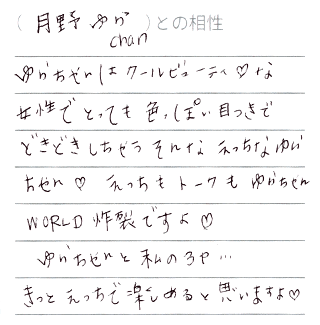 (月野 ゆか chan)との相性
ゆかちゃんはクールビューティ♡な
女性でとっても色っぽい目つきで
どきどきしちゃうそんなえっちなゆか
ちゃん♡ えっちもトークもゆかちゃん
WORLD炸裂ですよ♡
ゆかちゃんと私の3P…
きっとえっちで楽しめると思いますよ♡